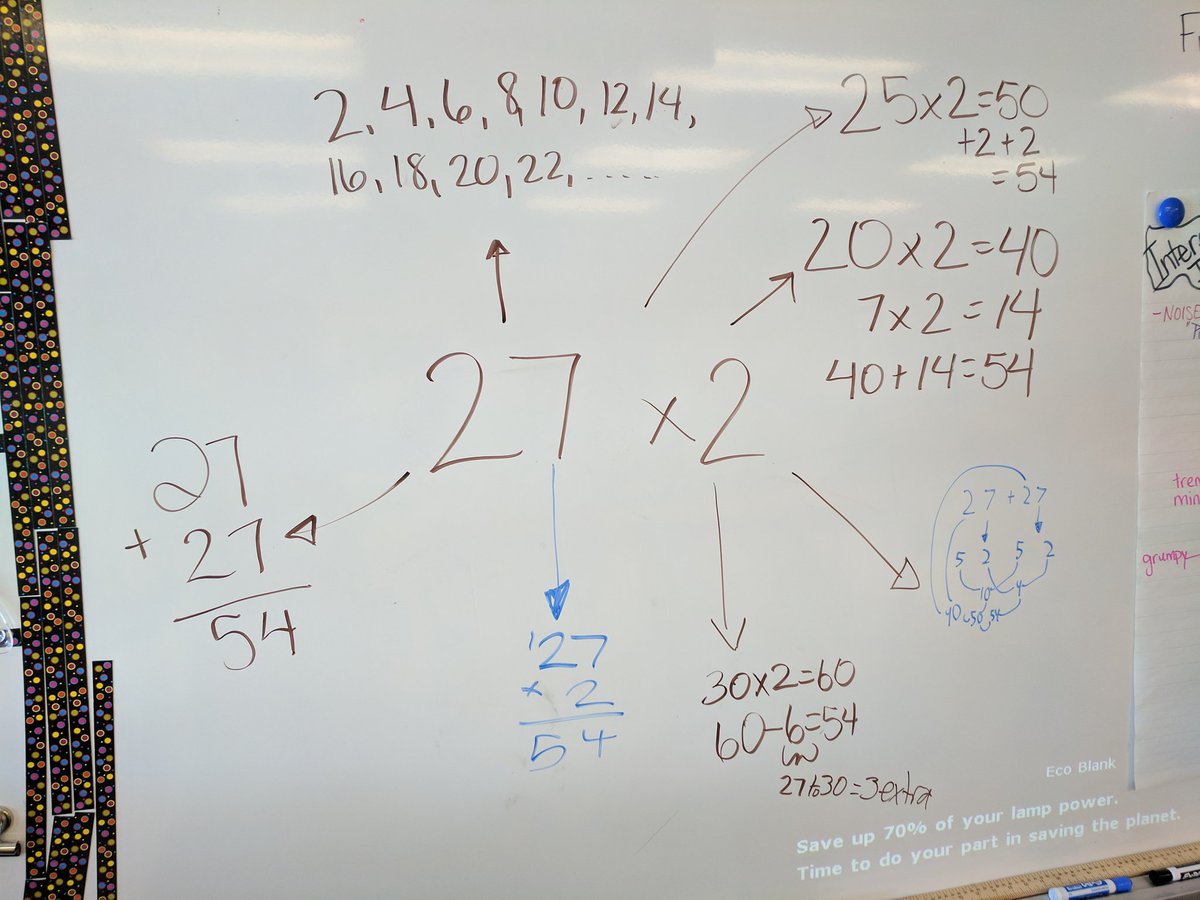 2, 4, 6, 8, 10, 12, 14,
16, 18, 20, 22, ......
25x2=50
+2+2
=54
20x2=40
7x2=14
40+14=54
27 x2
27
+ 27
54
27 + 27
5 2 5 2
10 4
40 50 54
'27
x 2
54
30x2=60
60-6=54
27to30=3extra
Inter
-NOISE
min
grumpy
Eco Blank
Save up 70% of your lamp power.
Time to do your part in saving the planet.